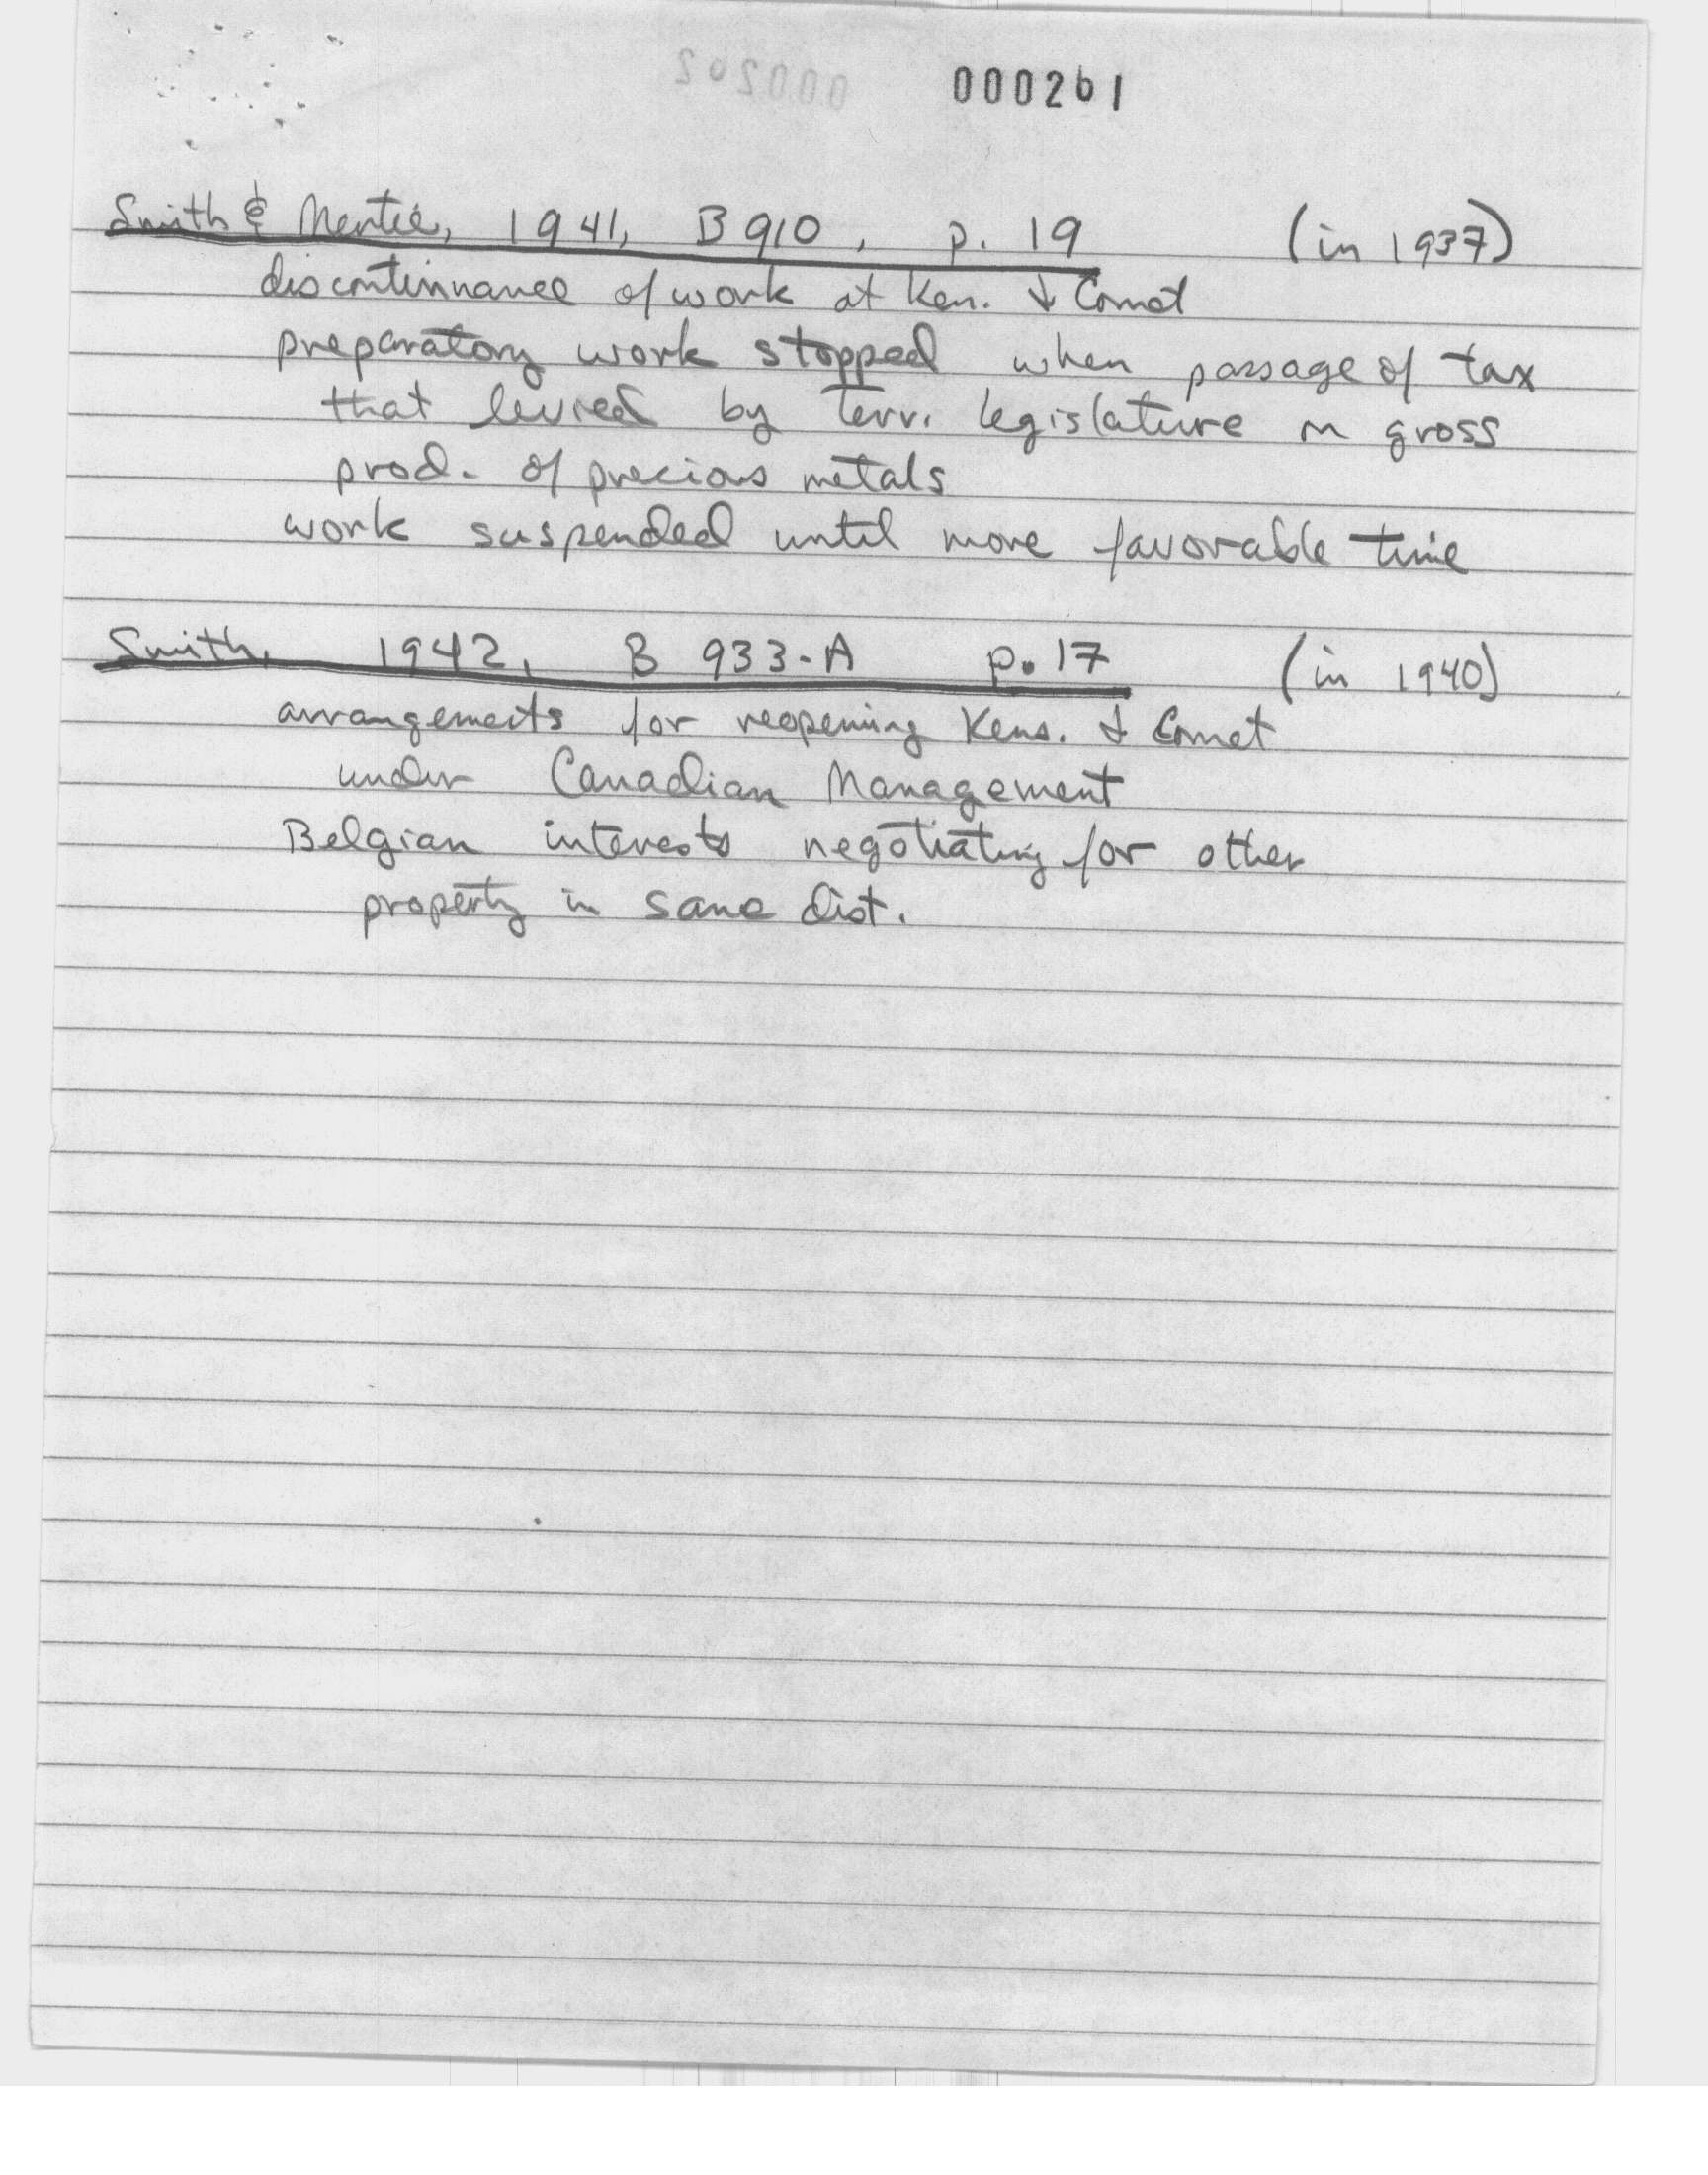 000261
Smith & Mertie, 1941, B 910, p. 19 (in 1937)
discontinuance of work at Ken. & Comet
preparatory work stopped when passage of tax
that levied by Terr. legislature on gross
prod. of precious metals
work suspended until more favorable time
Smith, 1942, B 933-A p. 17 (in 1940)
arrangements for reopening Kens. & Comet
under Canadian Management
Belgian interests negotiating for other
property in same dist.